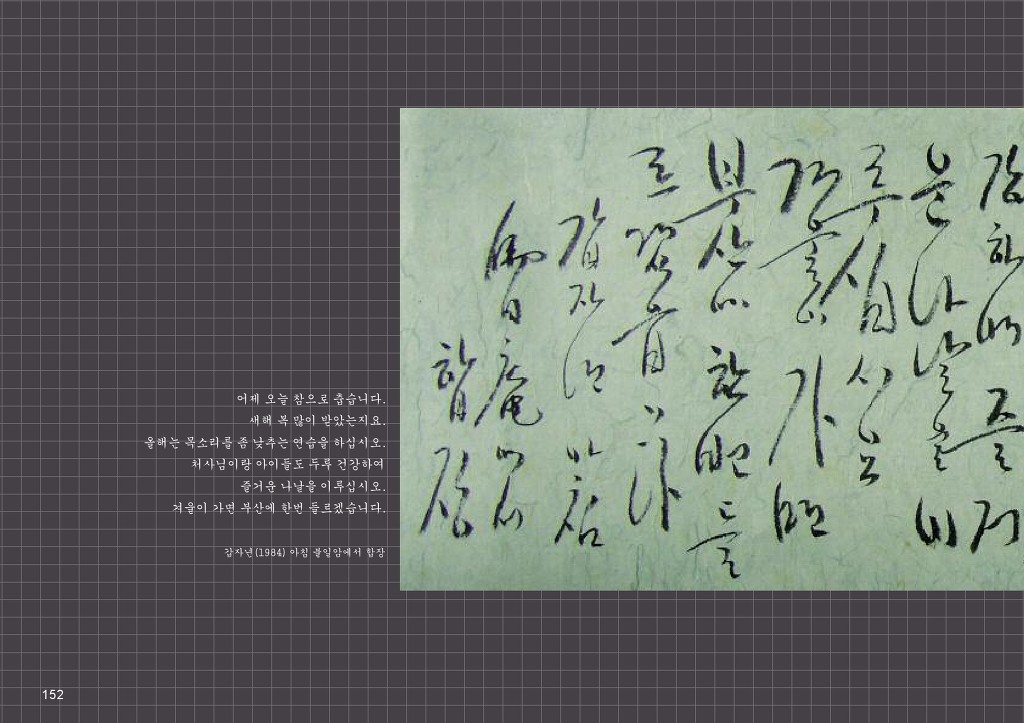 어제 오늘 참으로 춥습니다.
새해 복 많이 받았는지요.
올해는 목소리를 좀 낮추는 연습을 하십시오.
처사님이랑 아이들도 두루 건강하여
즐거운 나날을 이루십시오.
겨울이 가면 부산에 한번 들르겠습니다.
갑자년(1984) 아침 불일암에서 합장
강하여 즐거
운 나날을 이
루십시오
겨울이 가면
부산에 한번 들
르겠읍니다
갑자년 아침
佛日庵에서
합장
152